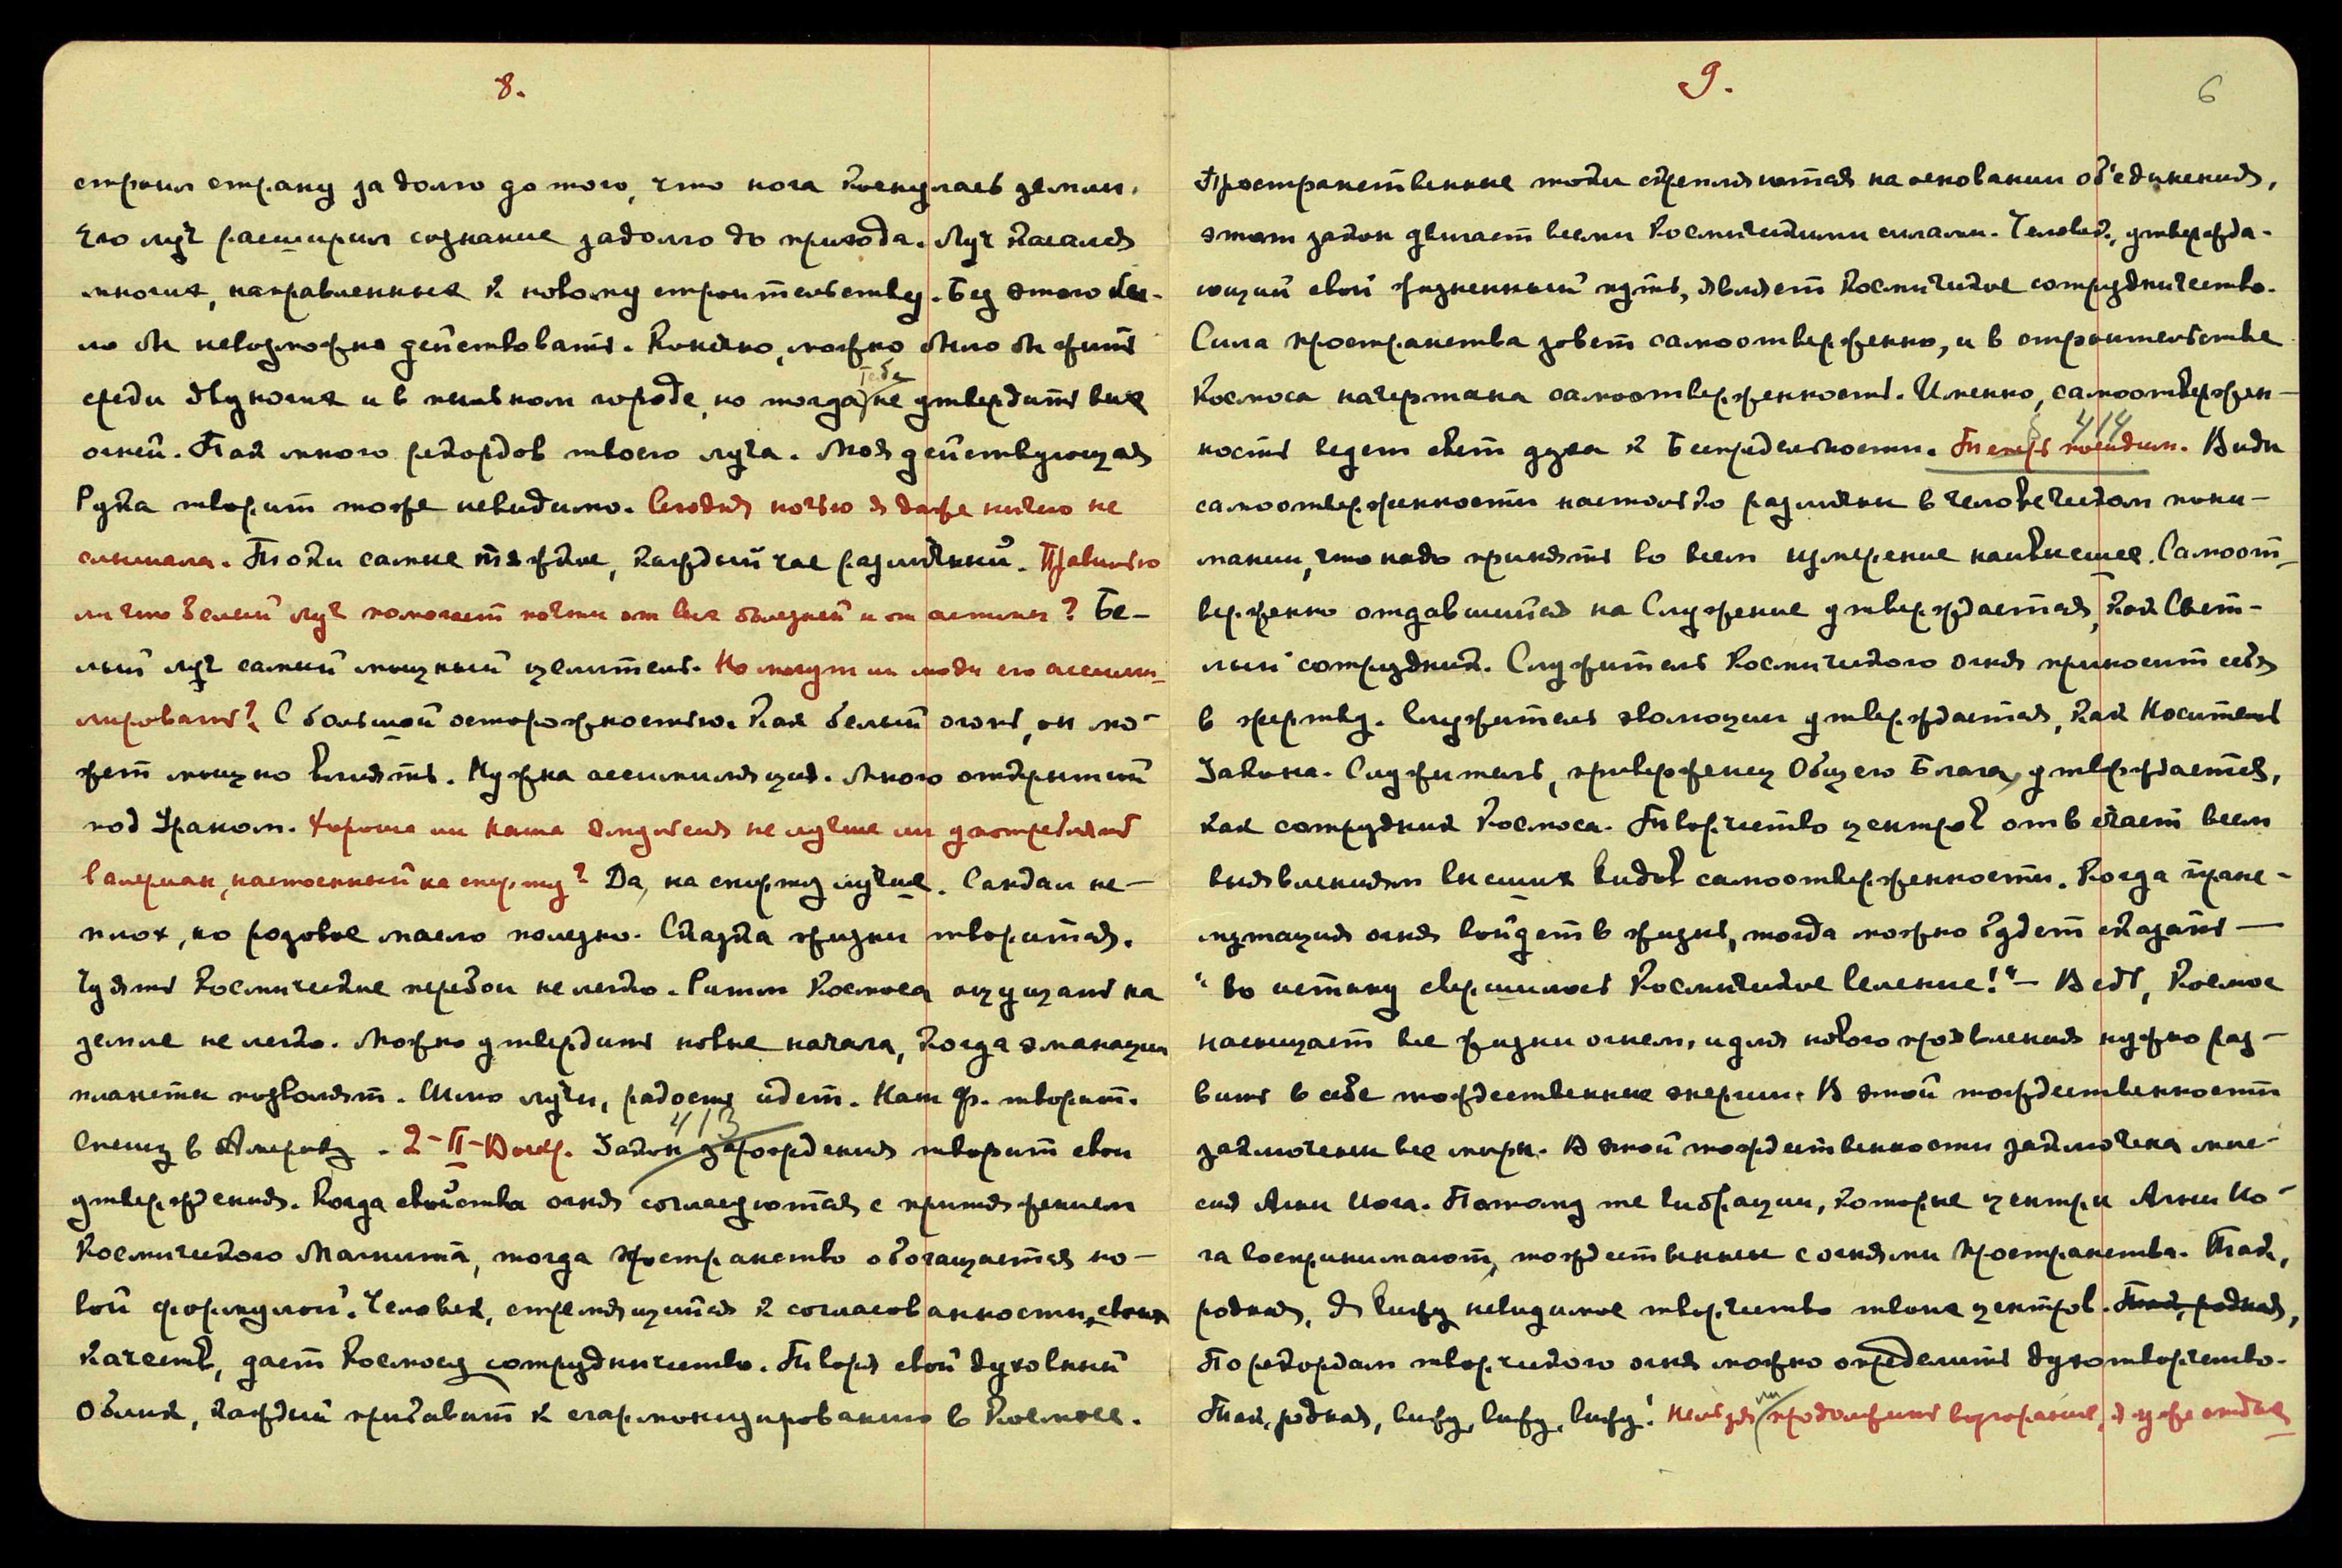 8.
строил страну задолго до того, что нога коснулась земли.
Его луч расширил сознание задолго до прихода. Луч касался
многих, направленных к новому строительству. Без этого бы-
ло бы невозможно действовать. Конечно, можно было бы жить
Тебе
среди двуногих и в пыльном городе, но тогда не утвердить всех
огней. Так много рекордов твоего луча. Моя действующая
Рука творит тоже невидимо. Сегодня ночью я даже ничего не
слышала. Токи самые тяжкие, каждый час различный. Правильно
ли что белый луч помогает почти от всех болезней и от астмы? Бе-
лый луч самый мощный целитель. Но могут ли люди его ассими-
лировать? С большой осторожностью. Как белый огонь, он мо-
жет мощно влиять. Нужна ассимиляция. Много открытий
под Ураном. Хороша ли наша эмульсия не лучше ли употреблять
валериан, настоенный на спирту? Да, на спирту лучше. Сандал не-
плох, но розовое масло полезно. Сказка жизни творится.
Чуять Космические перебои не легко. Ритм Космоса ощущать на
земле не легко. Можно утвердить новые начала, когда эманации
планеты позволят. Шлю лучи, радость идет. Наш Ф. творит.
413
Спешу в Америку. 2-II-Воскр. Закон зарождения творит свои
утверждения. Когда свойства огня согласуются с притяжением
Космического Магнита, тогда пространство обогащается но-
вой формулой. Человек, стремящийся к согласованности своих
качеств, дает Космосу сотрудничество. Творя свой духовный
Облик, каждый прибавит к сгармонизированию в Космосе.
9.
6
Пространственные токи скрепляются на основании об'единения,
этот закон двигает всеми Космическими силами. Человек, утвержда-
ющий свой жизненный путь, являет Космическое сотрудничество.
Сила пространства зовет самоотверженно, и в строительстве
Космоса начертана самоотверженность. Именно, самоотвержен-
414
ность ведет свет духа к Беспредельности. Теперь посидим. Виды
самоотверженности настолько различны в человеческом пони-
мании, что надо принять во всем измерение наивысшее. Самоот-
верженно отдавшийся на Служение утверждается, как Свет-
лый сотрудник. Служитель Космического огня приносит себя
в жертву. Служитель эволюции утверждается, как Носитель
Закона. Служитель, приверженец Общего Блага, утверждается,
как сотрудник Космоса. Творчество центров отвечает всем
выявлениям высших видов самоотверженности. Когда транс-
мутация огня войдет в жизнь, тогда можно будет сказать —
"во истину свершилось Космическое веление!" — Ведь, Космос
насыщает все жизни огнем, и для нового проявления нужно раз-
вить в себе тождественные энергии. В этой тождественности
заключены все миры. В этой тождественности заключена мис-
сия Агни Йога. Потому те вибрации, которые центры Агни Йо-
га воспринимают, тождественны с огнями пространства. Так,
родная, Я вижу невидимое творчество твоих центров. Так, родная,
По рекордам творческого огня можно определить духотворчество.
Так, родная, вижу, вижу, вижу! Нельзя ли продолжить возгорание, я уже